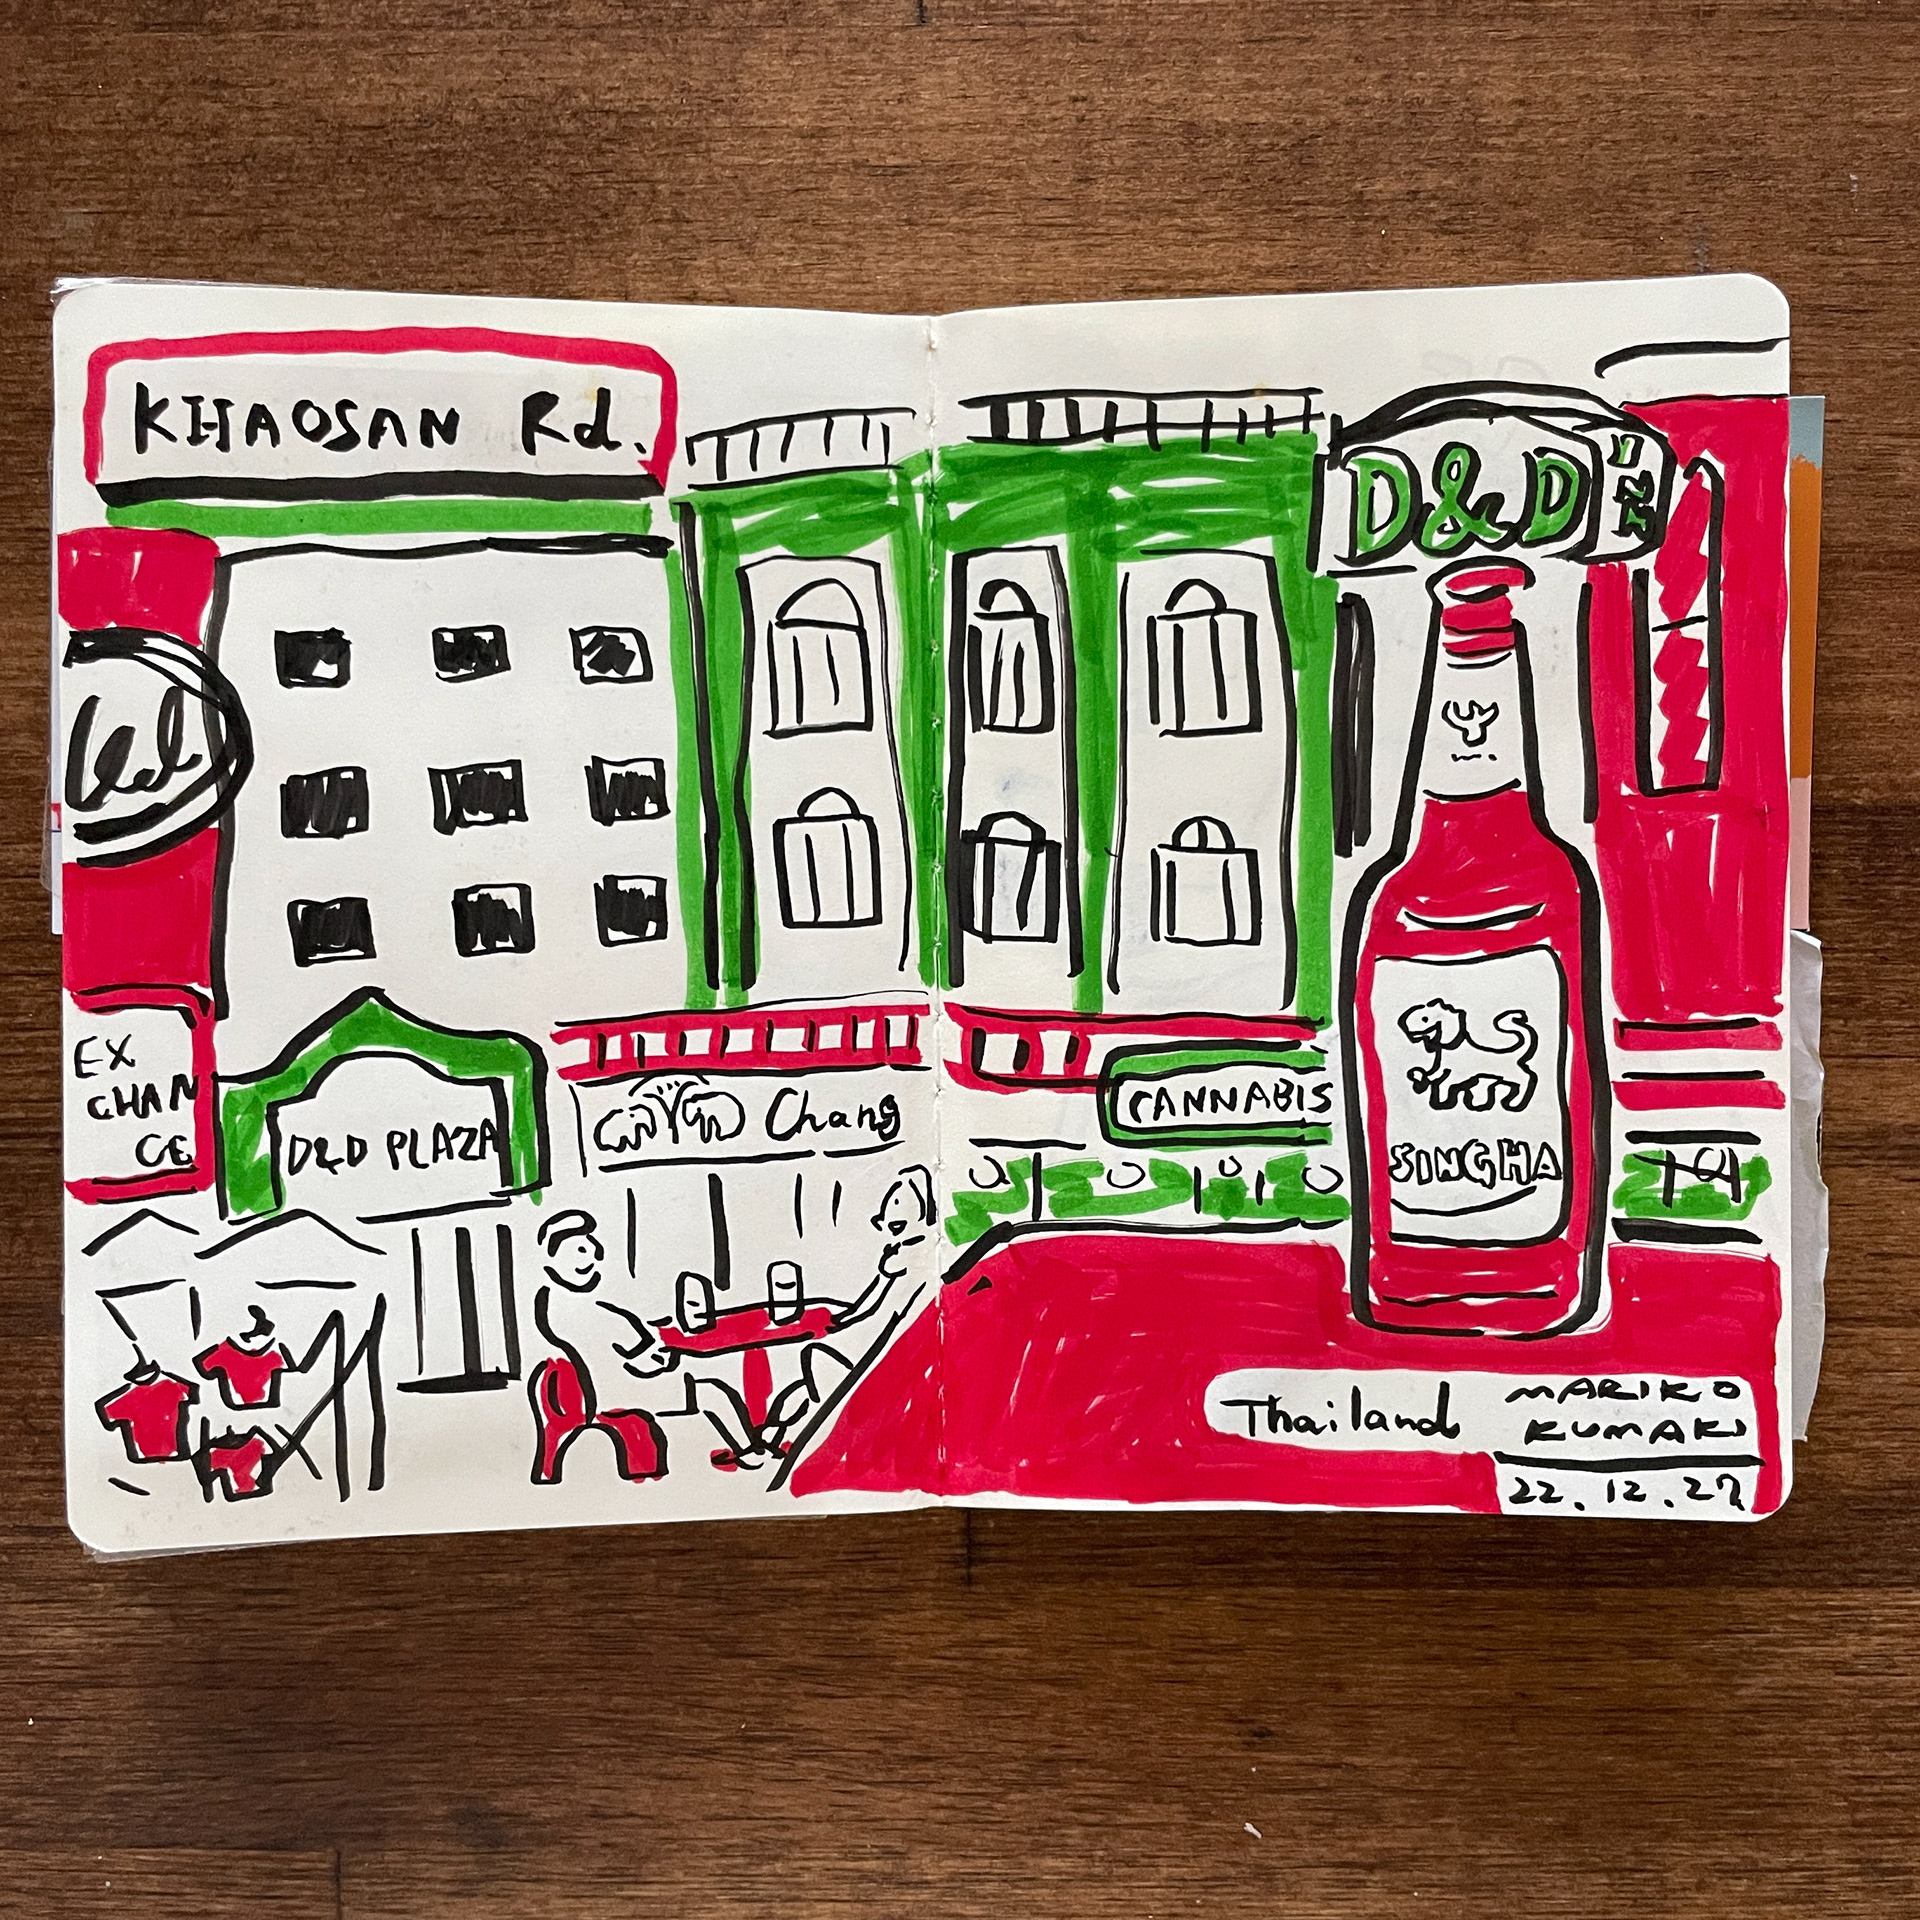 KHAOSAN Rd.
D&D
INN
EX
CHAN
GE
D&D PLAZA
Chang
CANNABIS
SINGHA
Thailand
MARIKO
KUMAKI
22.12.27